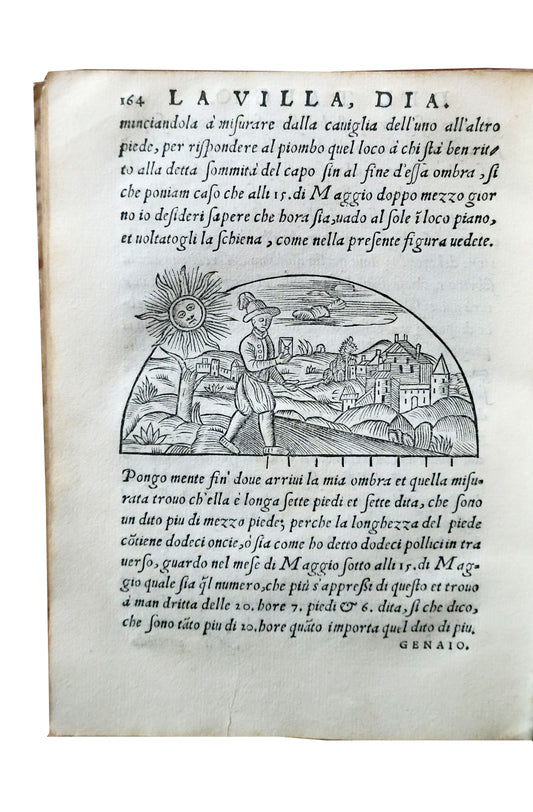 164 LA VILLA, DIA.
minciandola à misurare dalla cauiglia dell'uno all'altro
piede, per rispondere al piombo quel loco à chi stà ben rit-
to alla detta sommità del capo sin al fine d'essa ombra, si
che poniam caso che alli 15. di Maggio doppo mezzo gior
no io desideri sapere che hora sia, uado al sole ĩ loco piano,
et uoltatogli la schiena, come nella presente figura uedete.
Pongo mente fin' doue arriui la mia ombra et quella misu-
rata trouo ch'ella è longa sette piedi et sette dita, che sono
un dito piu di mezzo piede; perche la longhezza del piede
cõtiene dodeci oncie, ò sia come ho detto dodeci pollici in tra
uerso, guardo nel mese di Maggio sotto alli 15. di Mag-
gio quale sia q̃l numero, che più s'appressi di questo et trouo
à man dritta delle 20. hore 7. piedi & 6. dita, si che dico,
che sono tãto piu di 20. hore quãto importa quel dito di piu.
GENAIO.